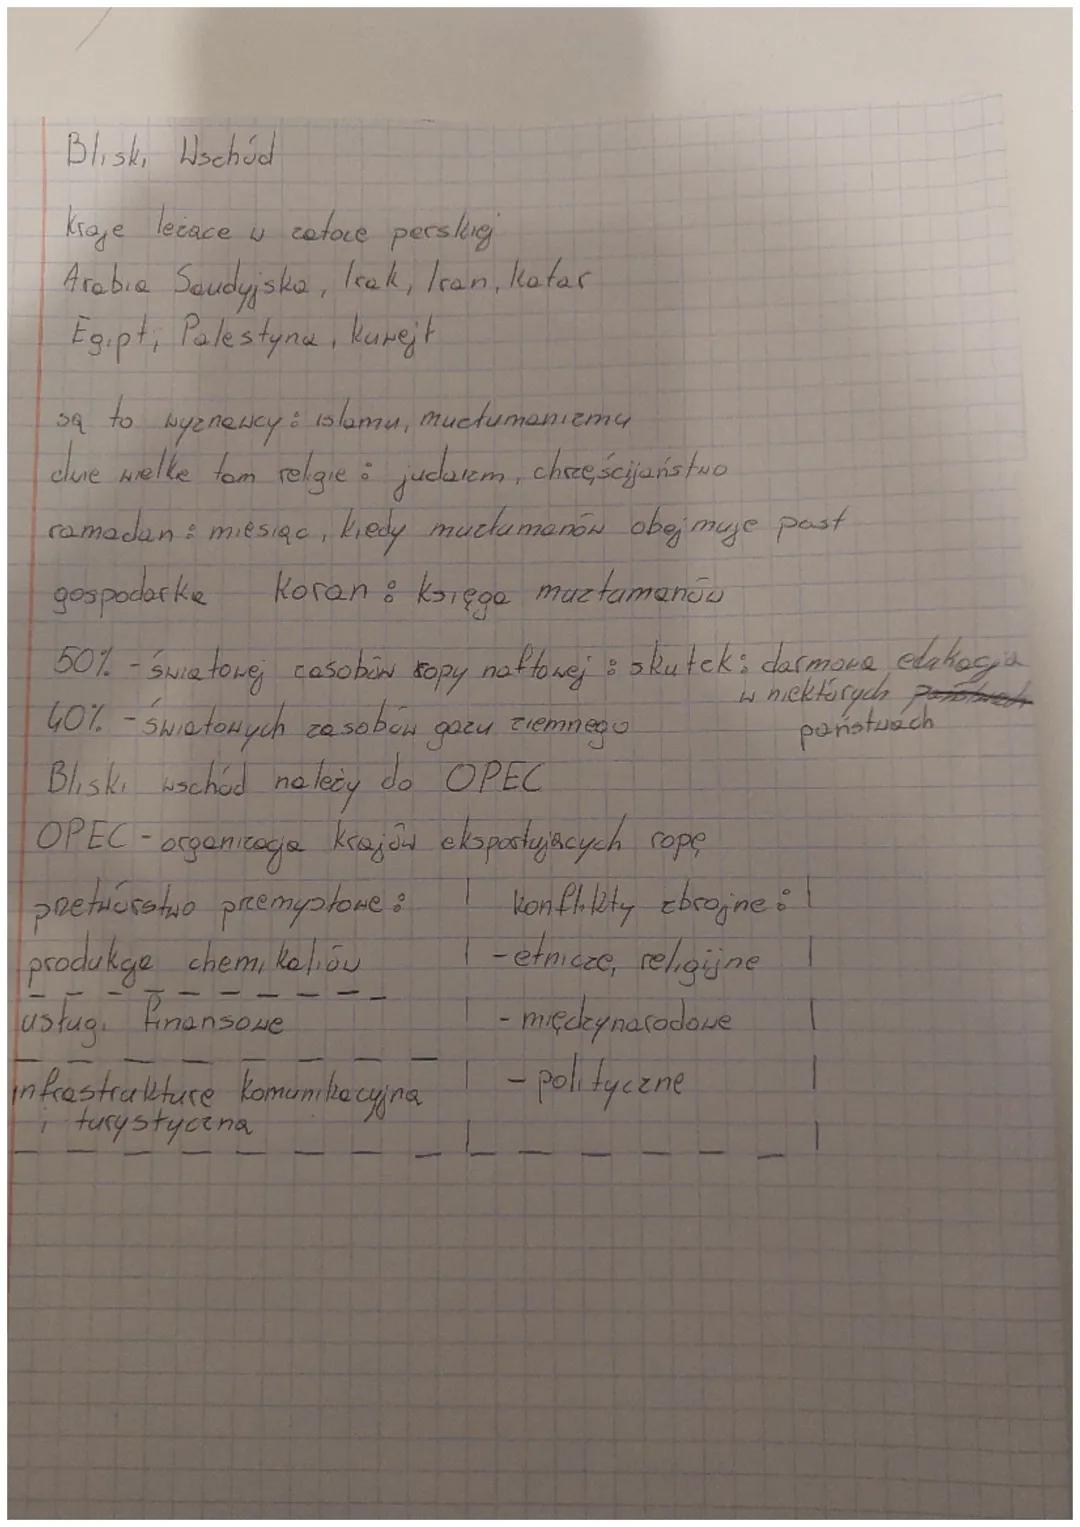 Bliski Wschód
Kraje leżące w zatoce perskiej
Arabia Saudyjska, Irak, Iran, Katar
Egipt, Palestyna, Kuwejt
są to wyznawcy: islamu, muzłumanizmu
dwie wielke tam religie: judaizm, chrześcijaństwo
ramadan: miesiąc, kiedy muzłumanów obejmuje post
gospodarka Koran: księga muzłumanów
50% - światowej zasobów ropy naftowej: skutek: darmowa edukacja
w niektórych państwach
państwach
40% - światowych zasobów gazu ziemnego
Bliski wschód należy do OPEC
OPEC - organizacja krajów eksportujących ropę
przetwórstwo przemysłowe:
produkcja chemikaliów
usługi finansowe
infrastrukturę komunikacyjna
i turystyczna
konflikty zbrojne:
- etnicze, religijne
- międzynarodowe
- polityczne